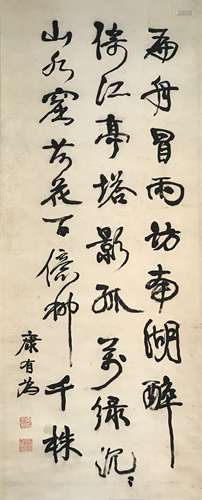 扁舟冒雨訪南湖醉
倚江亭塔影孤萬綠沉〻
山水窟荷花百億柳千株
康有為